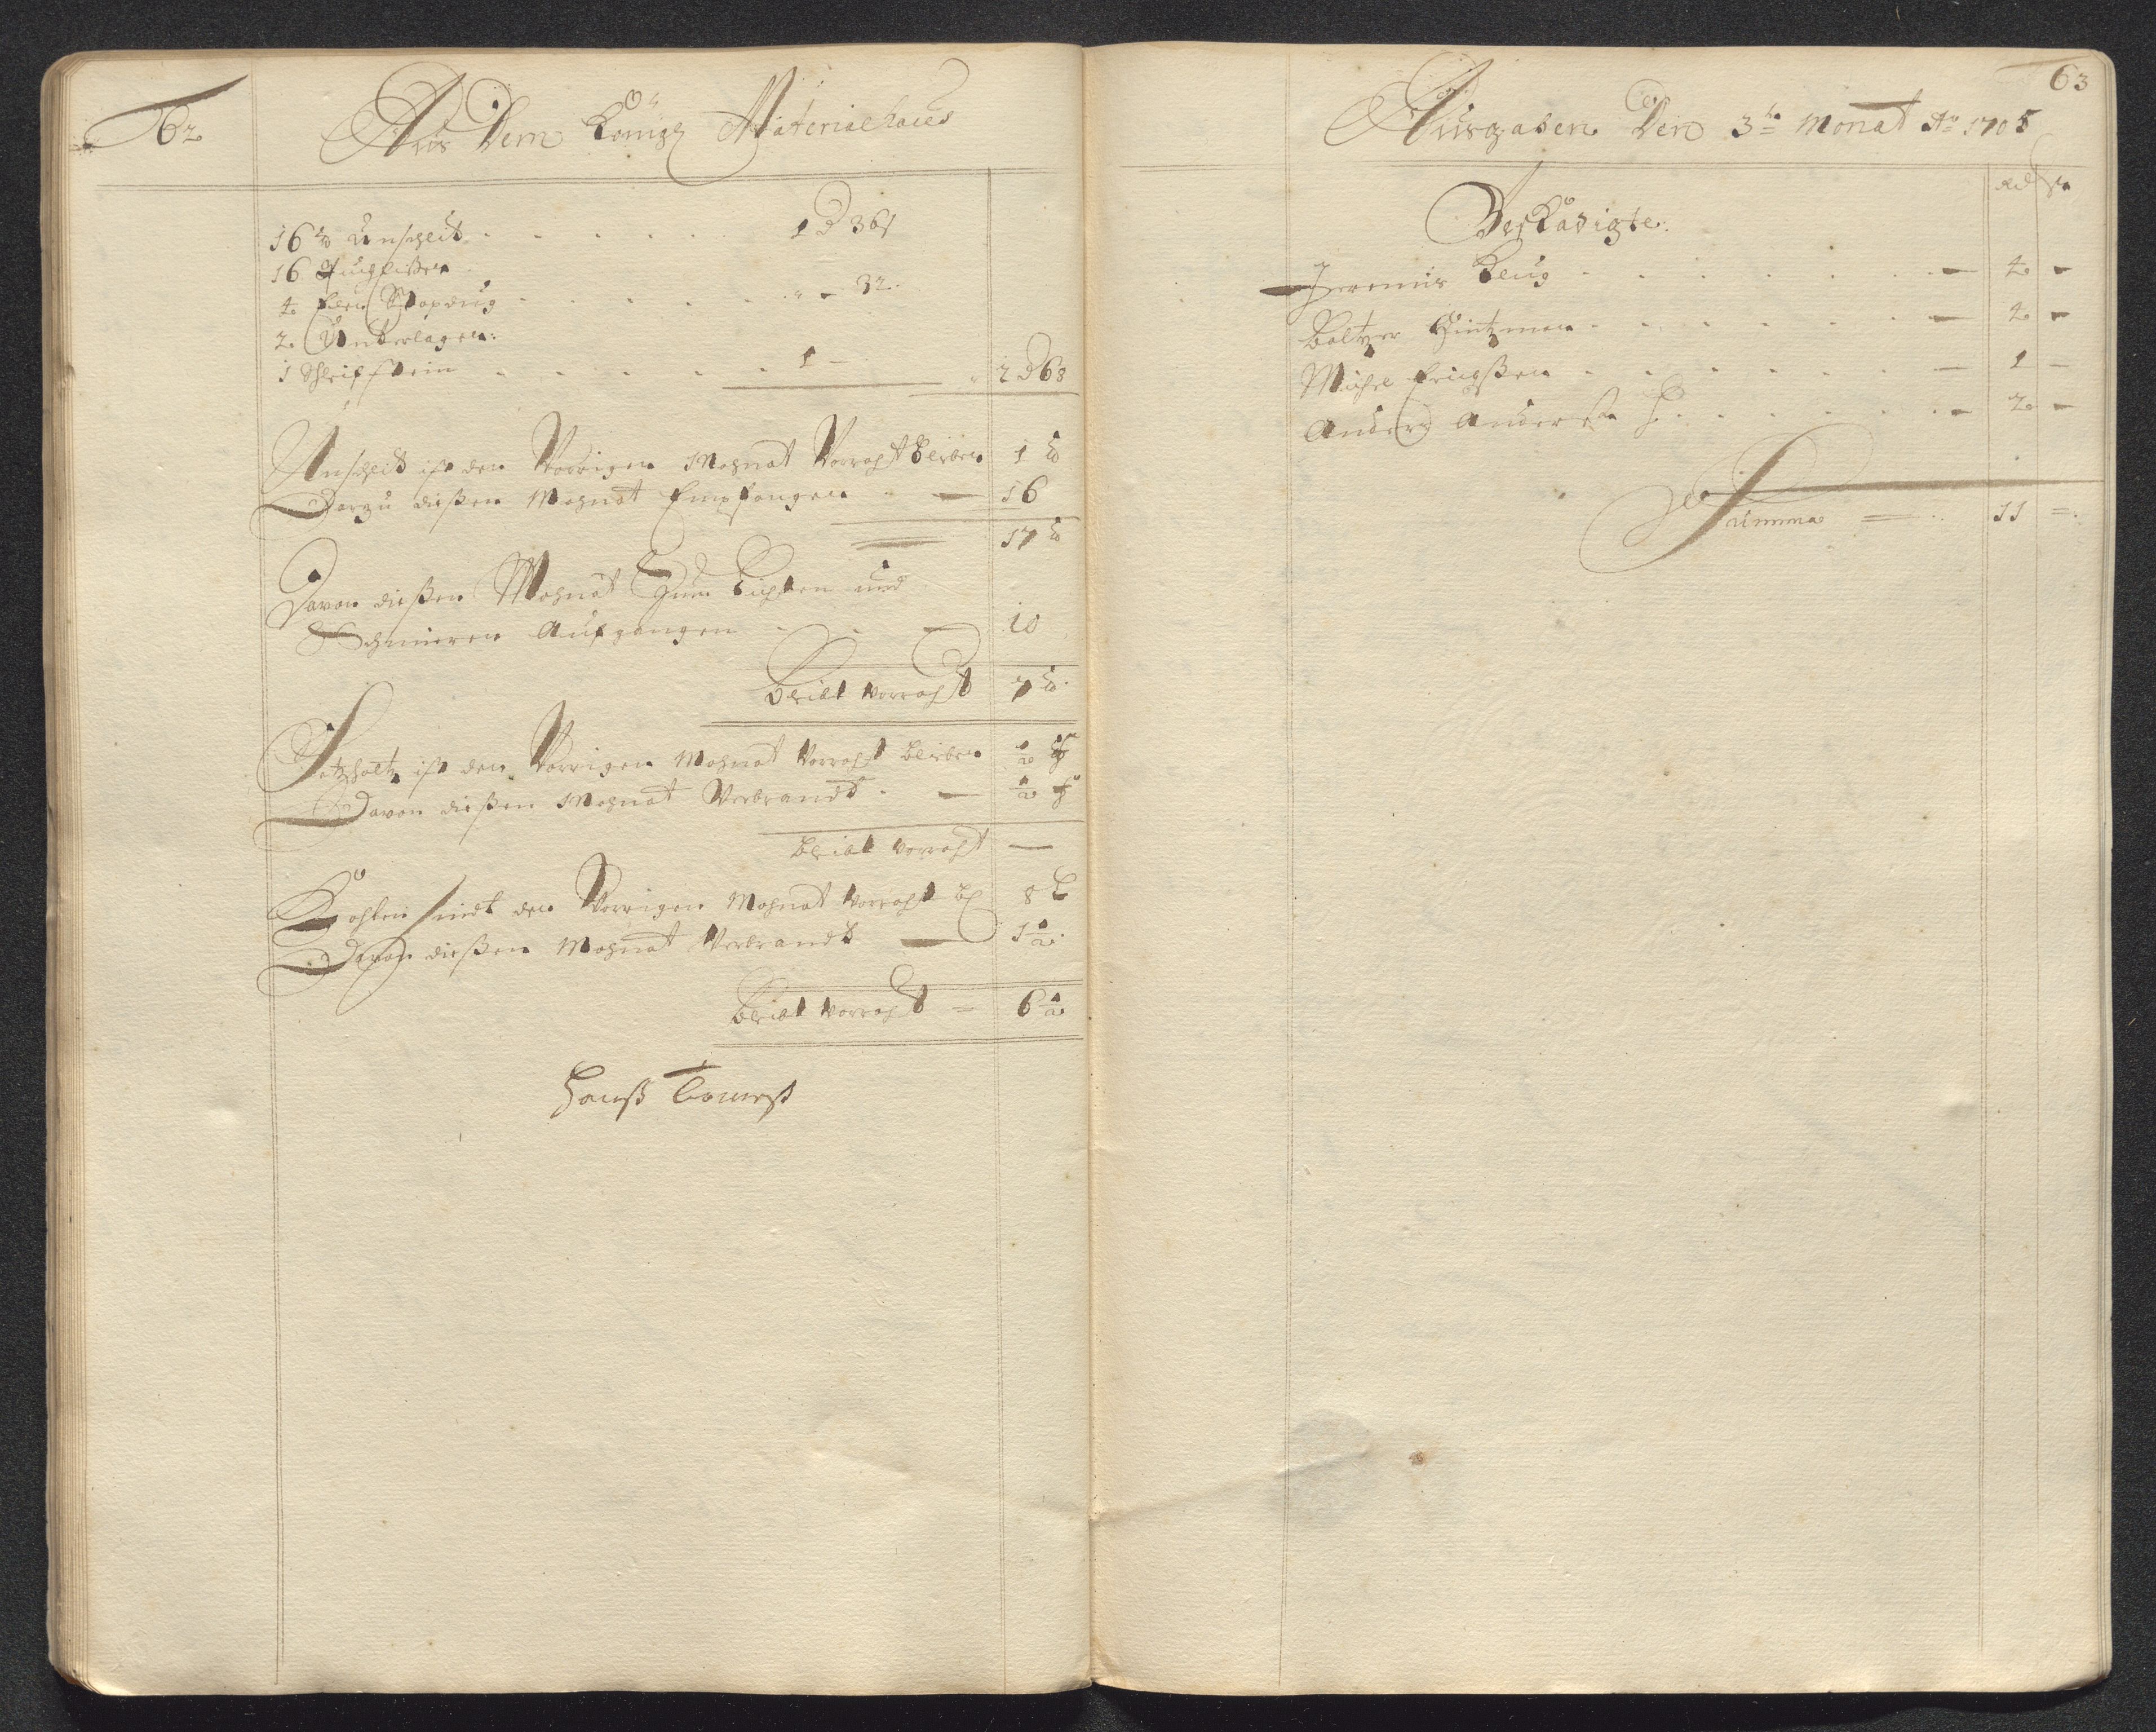 62
Aus Dem Königl Materialhaus
16 ℔ Unscheit . . . . . 1 D 36 ß
16 Fuglißen
4 Elen . . . . . " - 32
2 Underlagen
1 Schleifstein . . . . . 1 - 2 D 68
Unscheit ist den Vorrigen Mohnat Vorraht blieben 1 ℔
Darzu dießen Mohnat Empfangen — 16
17 ℔
Davon dießen Mohnat Zum Lichten und
Schmieren Aufgangen 10
bleibt vorraht 7 ℔
Setzholtz ist den Vorrigen Mohnat Vorraht blieben 1/2
Davon dießen Mohnat Verbrandt — 1/2
bleibt vorraht —
Kohlen sindt den Vorrigen Mohnat vorraht bl 8 L
Davon dießen Mohnat Verbrandt — 1 1/2
bleibt vorraht = 6 1/2
Hanß
63
Ausgaben Den 3te Monat Ao 1705
Rd ß
Beschädigte
Jeremis Klug . . . . . — 4 -
Baltzer Hintzman . . . . . — 4 -
Michel Erichßen . . . . . — 1 -
Anders Anderßn . . . . . — 2 -
Summa = 11 =